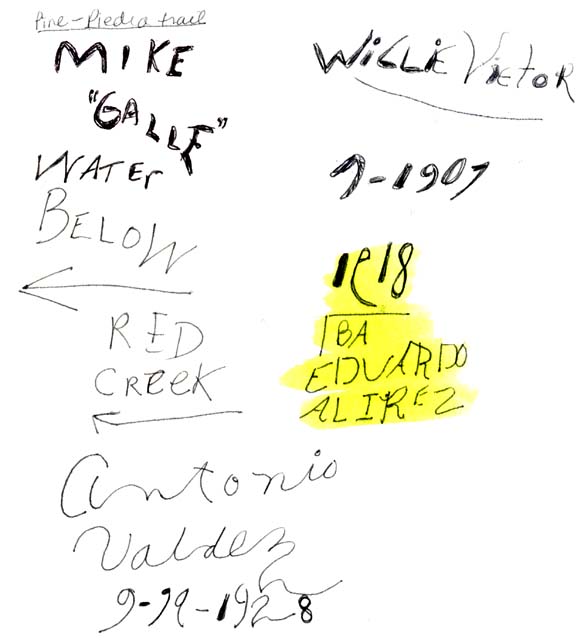 Pine-Piedra trail
MIKE
"GALLE"
WATEr
BELOW
RED
CREEK
Antonio
Valdez
9-19-1928
WiLLiE Victor
9-1907
1918
BA
EDUARDO
ALIREZ